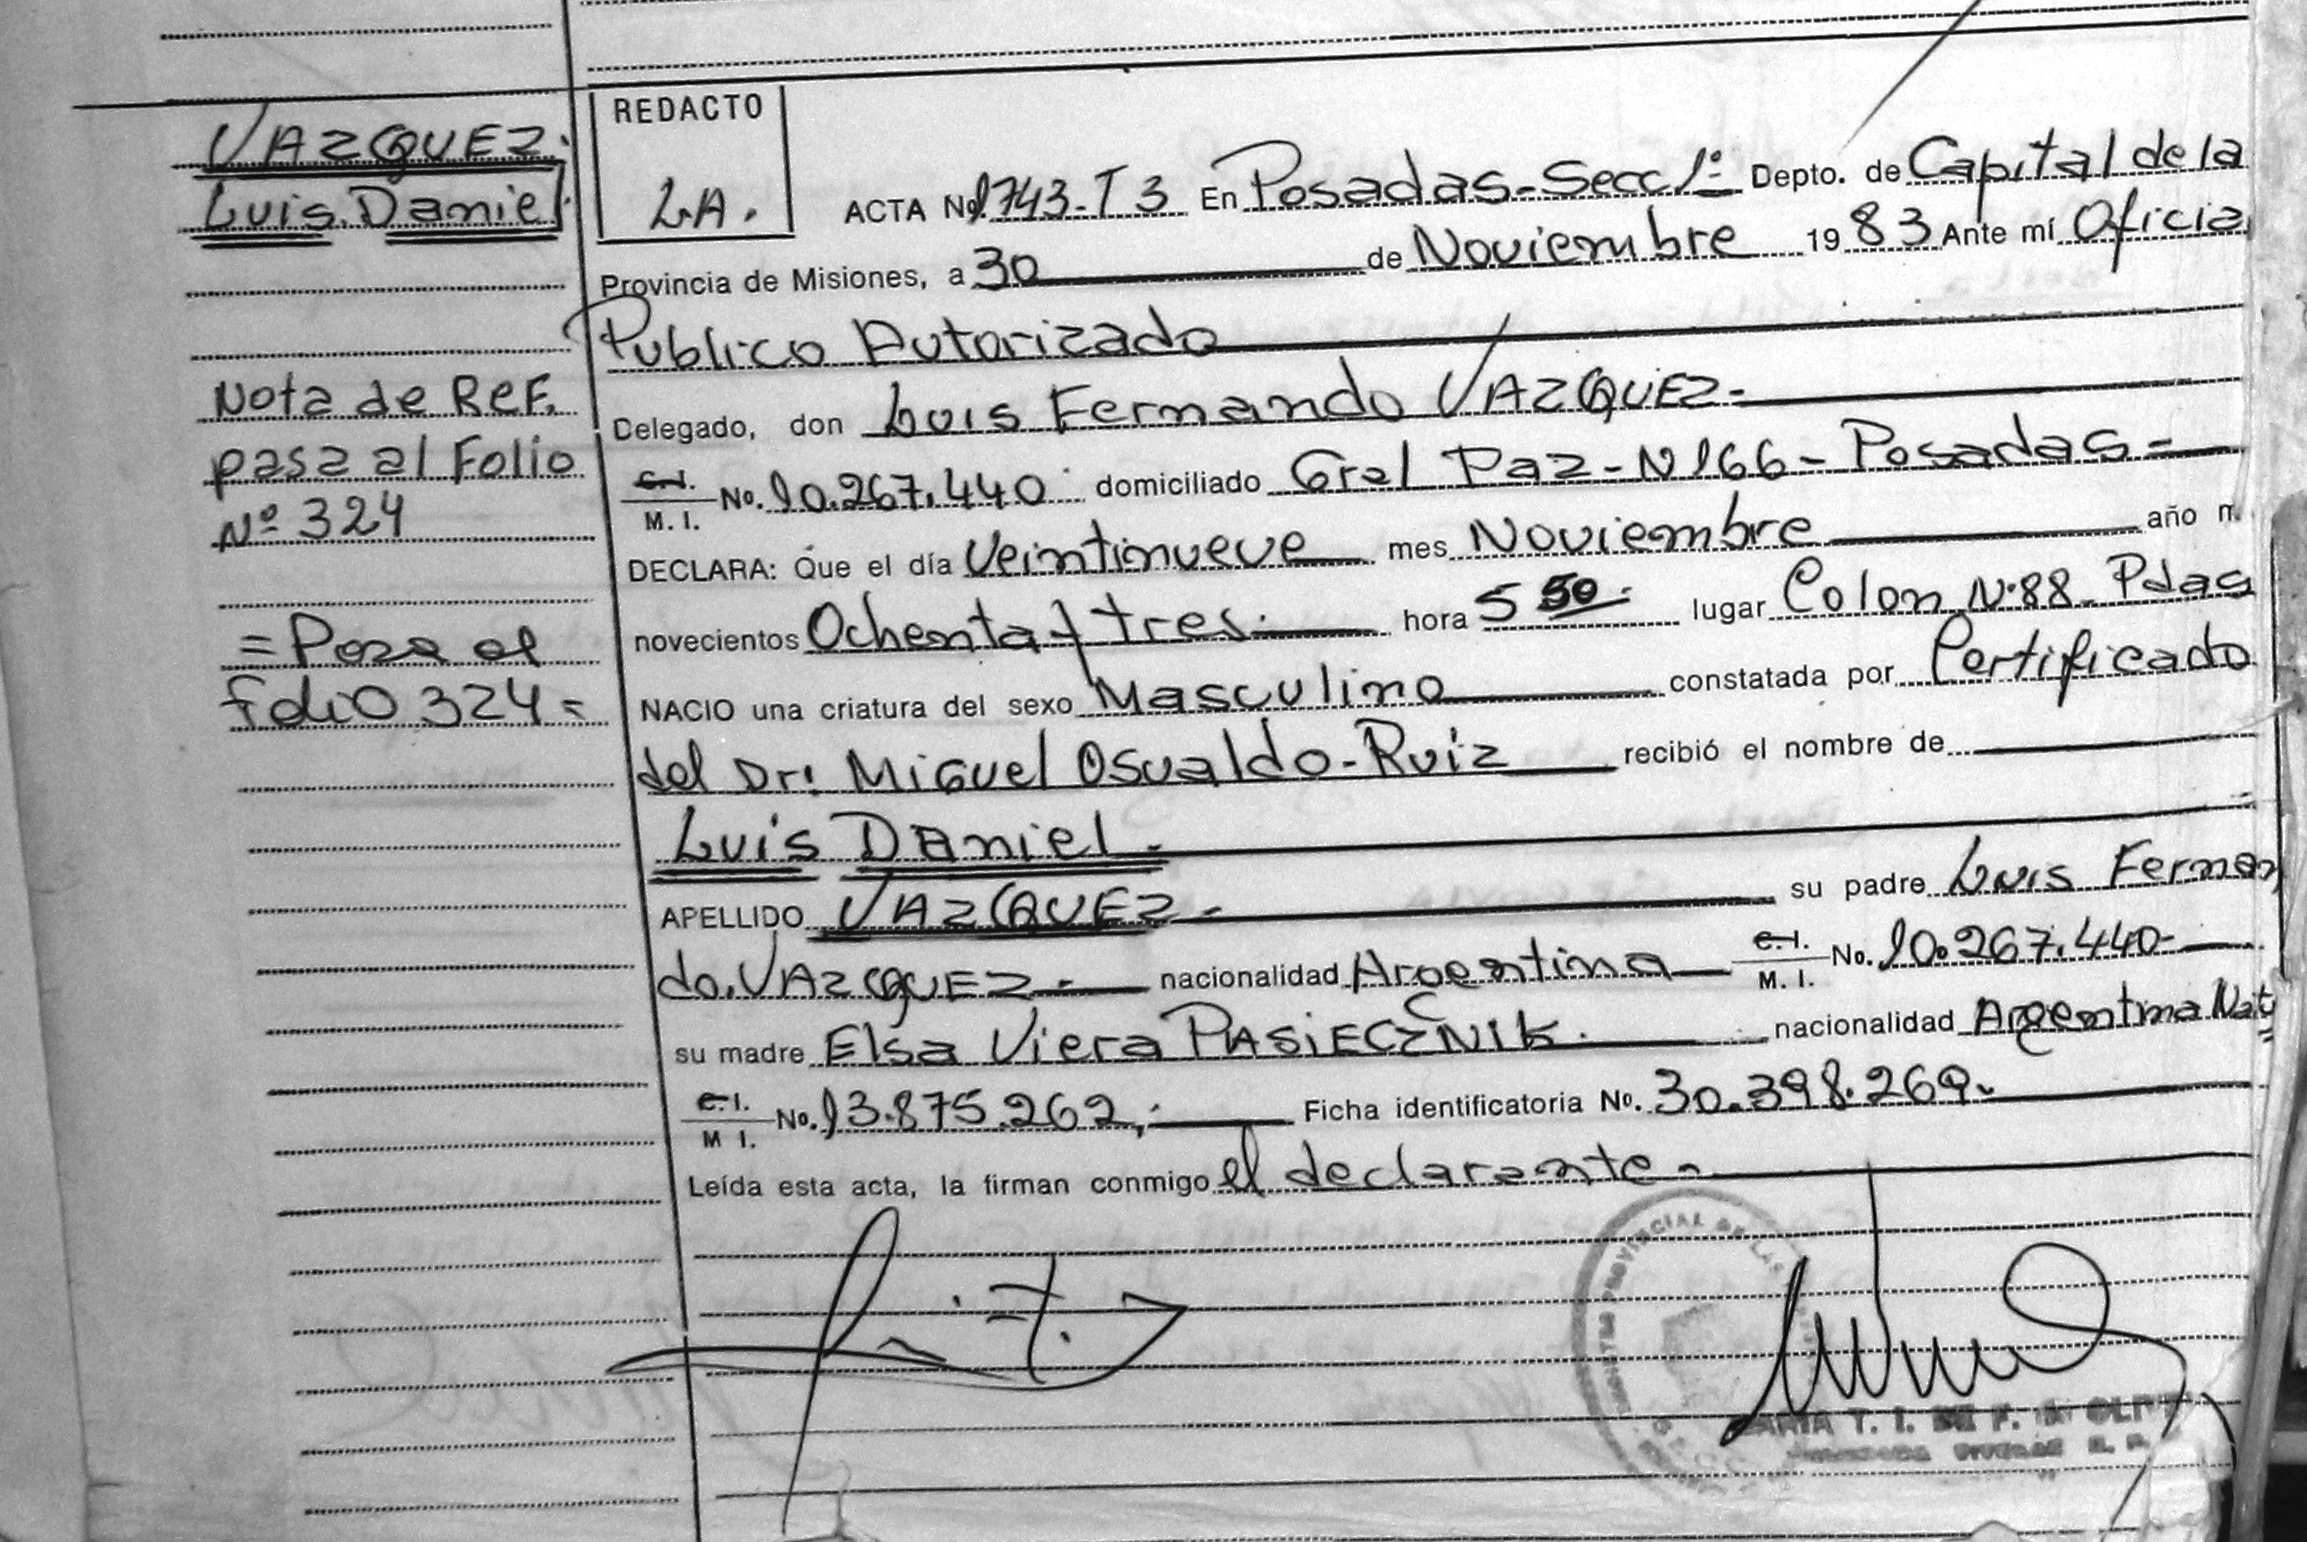 VAZQUEZ.
Luis Daniel.
Nota de REF.
pasa al Folio
Nº 324
= Pasa al
folio 324 =
REDACTO
LA.
ACTA Nº 1743-T3 En Posadas-Secc 1º Depto. de Capital de la
Provincia de Misiones, a 30 de Noviembre 1983 Ante mí Oficia
Publico Autorizado
Delegado, don Luis Fernando VAZQUEZ-
C.I. M.I. No. 10.267.440 domiciliado Gral Paz-N166-Posadas=
DECLARA: Que el día Veintinueve mes Noviembre año m
novecientos Ochenta y tres. hora 5 50. lugar Colon Nº88-Pdas
NACIO una criatura del sexo Masculino constatada por Certificado
del Dr: Miguel Osvaldo-Ruiz recibió el nombre de
Luis Daniel.
APELLIDO VAZQUEZ- su padre Luis Fernan
do. VAZQUEZ- nacionalidad Argentina C.I. M.I. No. 10.267.440-
su madre Elsa Viera PASIECZNIK. nacionalidad Argentina Nat
C.I. M I. No. 13.875.262,- Ficha identificatoria No. 30.398.269-
Leída esta acta, la firman conmigo el declarante-
PROVINCIAL DE LAS
T. I. DE F. OLIV